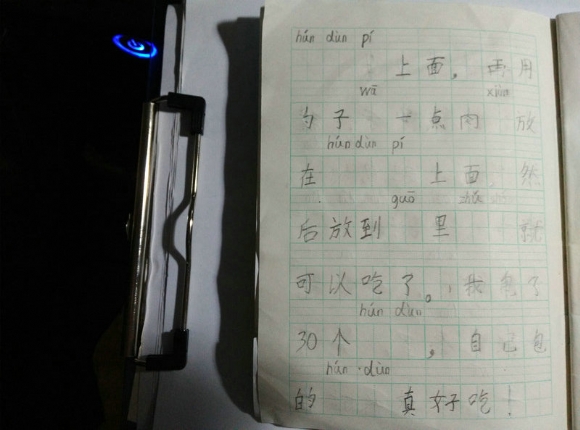 hún dùn pí
上面,再用
wā
勺子 一点肉 放
hún dùn pí
在 上面,然
guō
后放到 里 就
可以吃了。我包了
hún dùn
30个 ,自己包
hún dùn
的 真好吃!